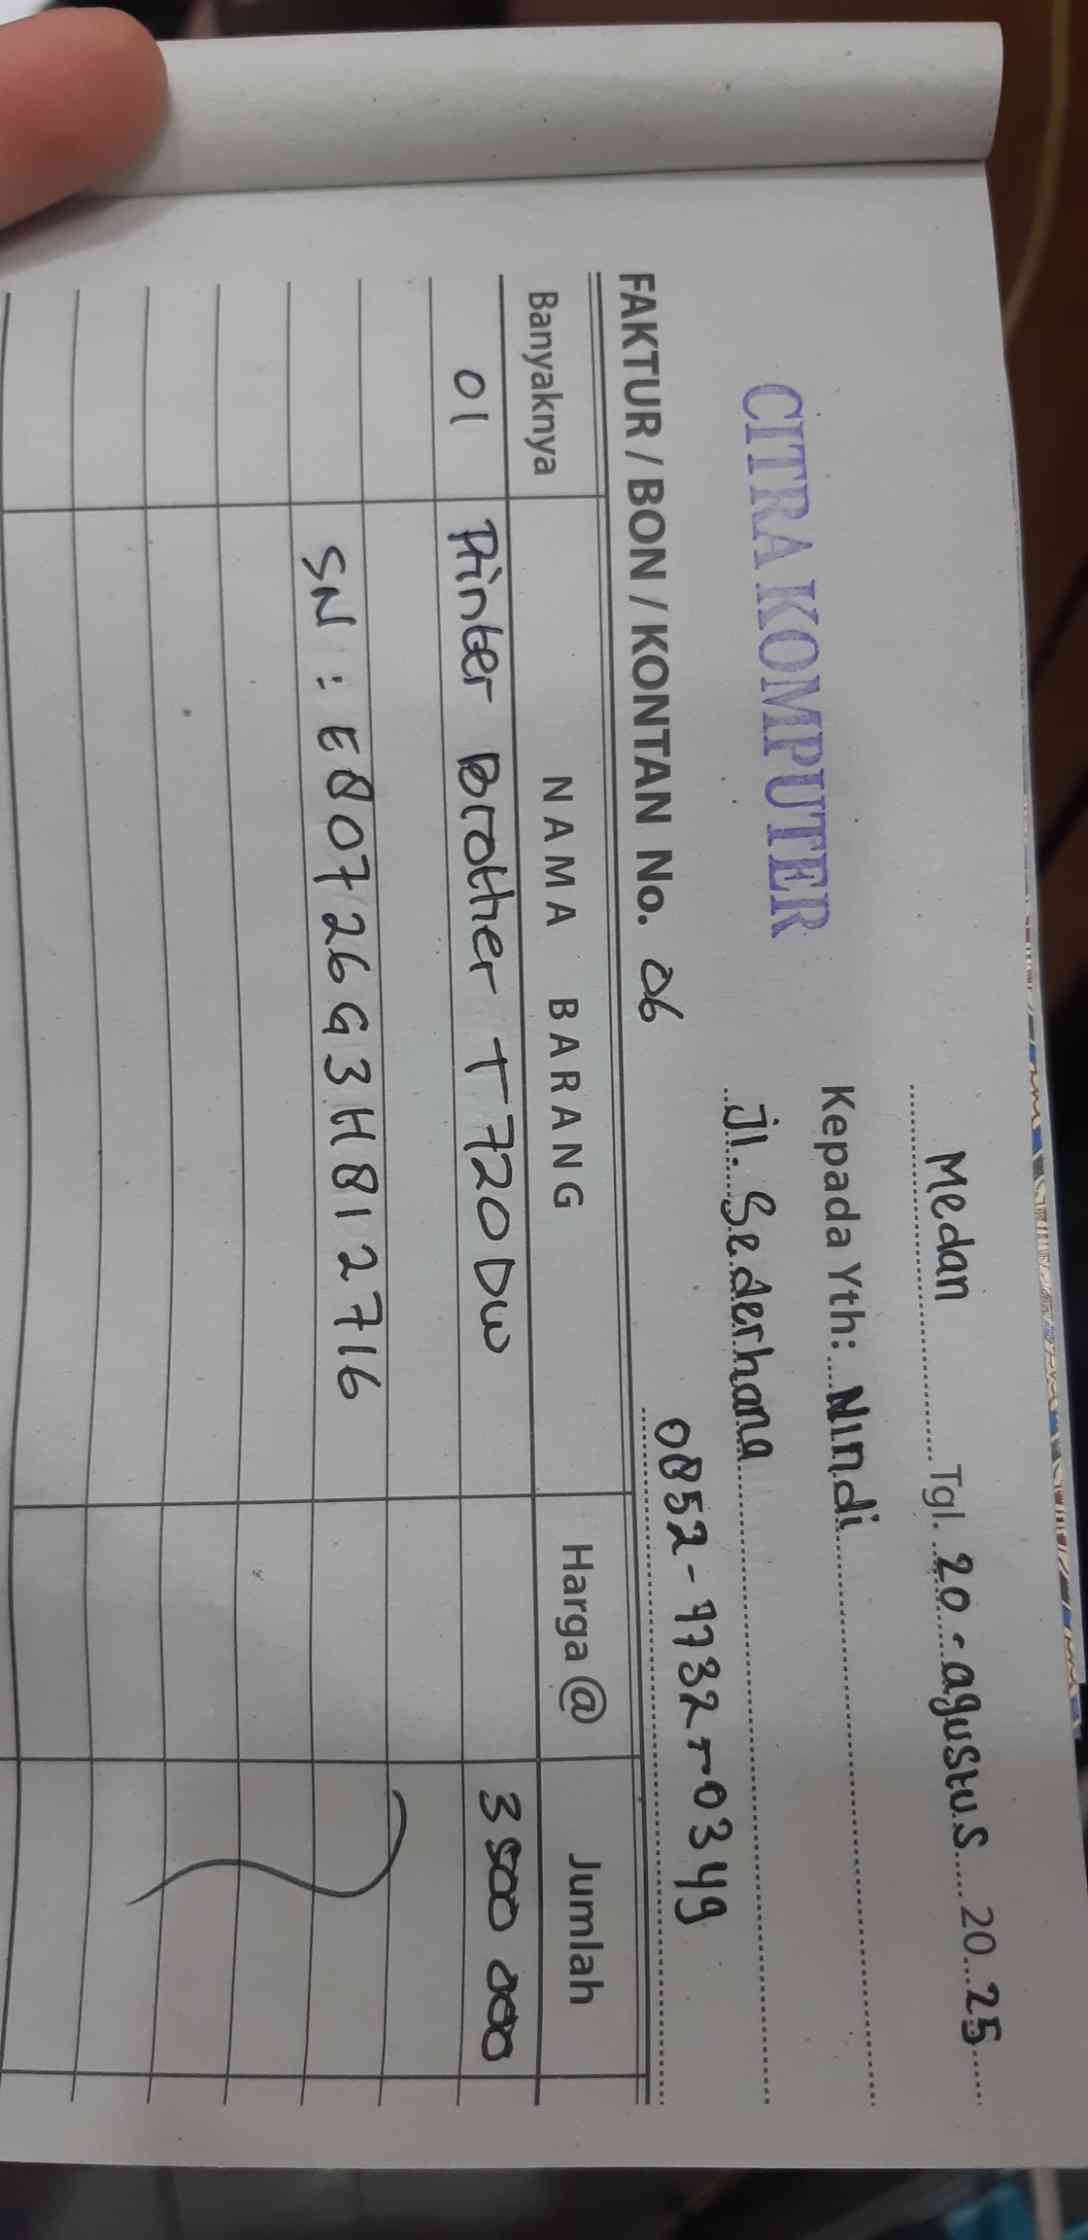 Medan Tgl. 20 - agustus 20 25
CITRA KOMPUTER
Kepada Yth: Nindi
Jl. Sederhana
0852-9732-0349
FAKTUR / BON / KONTAN No. 06
Banyaknya NAMA BARANG Harga @ Jumlah
01 Printer Brother T720DW 3500 000
SN : E80726G3H812716